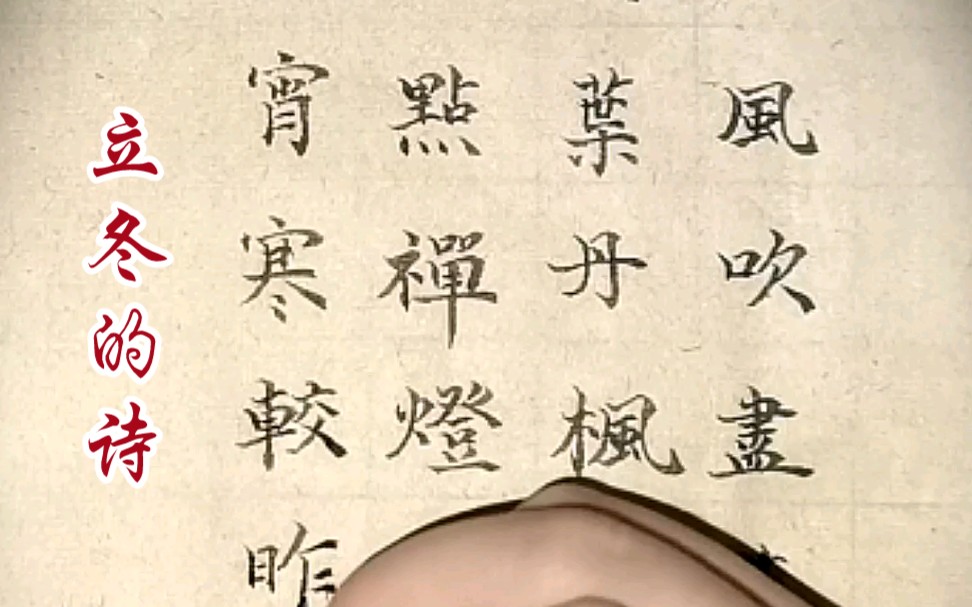 風吹盡
葉丹楓
點禪燈
宵寒較昨
立冬的诗